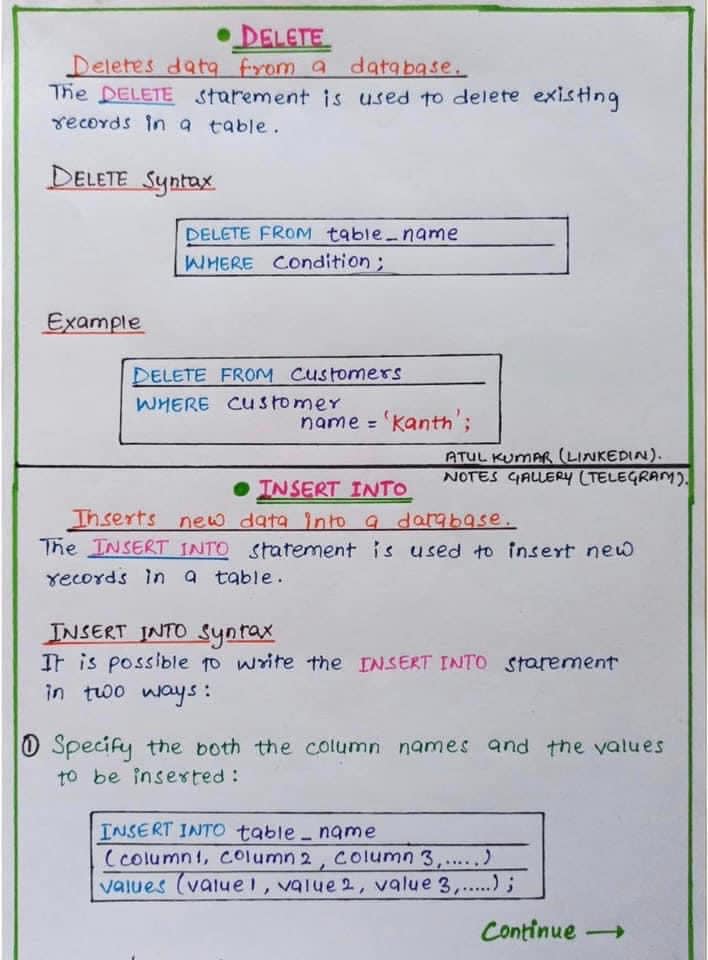 • DELETE
Deletes data from a database.
The DELETE statement is used to delete existing
records in a table.
DELETE Syntax
DELETE FROM table_name
WHERE Condition;
Example
DELETE FROM Customers
WHERE Customer
name = 'Kanth';
ATUL KUMAR (LINKEDIN).
NOTES GALLERY (TELEGRAM).
• INSERT INTO
Inserts new data into a database.
The INSERT INTO statement is used to insert new
records in a table.
INSERT INTO Syntax
It is possible to write the INSERT INTO statement
in two ways:
① Specify the both the column names and the values
to be inserted:
INSERT INTO table_name
(column1, column2, column3,.....)
values (value1, value2, value3,.....);
Continue →